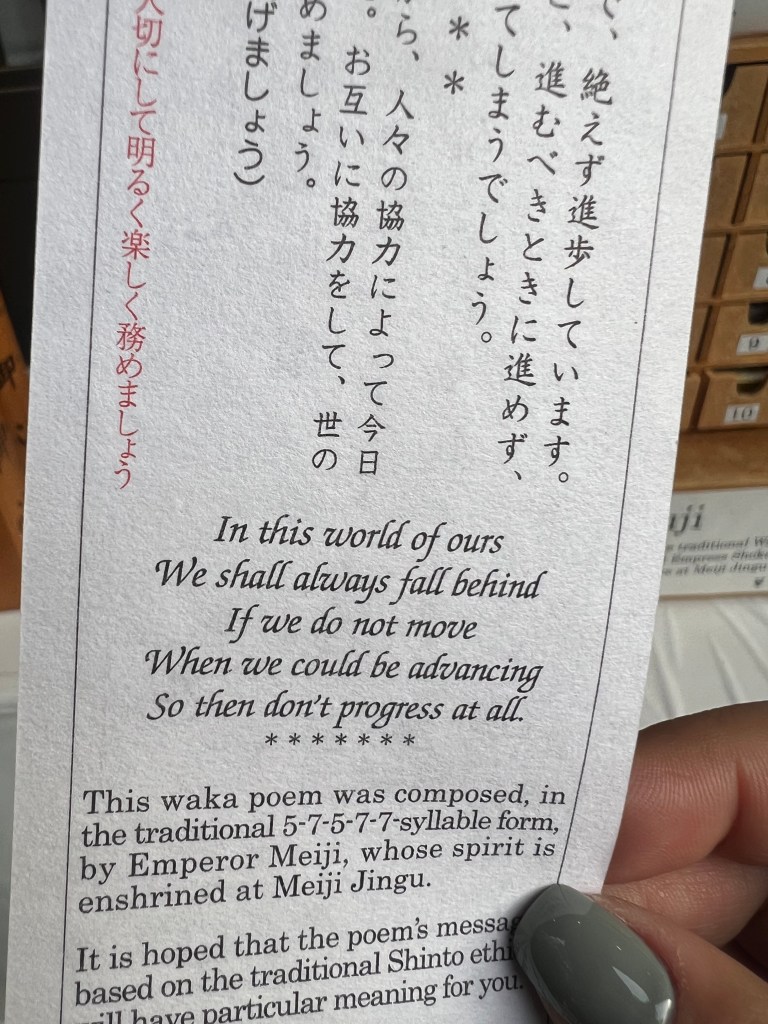 、絶えず進歩しています。
、進むべきときに進めず、
てしまうでしょう。
* *
から、人々の協力によって今日
。お互いに協力をして、世の
めましょう。
げましょう)
切にして明るく楽しく務めましょう
In this world of ours
We shall always fall behind
If we do not move
When we could be advancing
So then don't progress at all.
* * * * * * *
This waka poem was composed, in
the traditional 5-7-5-7-7-syllable form,
by Emperor Meiji, whose spirit is
enshrined at Meiji Jingu.
It is hoped that the poem's
based on the traditional Shinto
will have particular meaning for you.
9
10
traditional
Empress
at Meiji Jingu